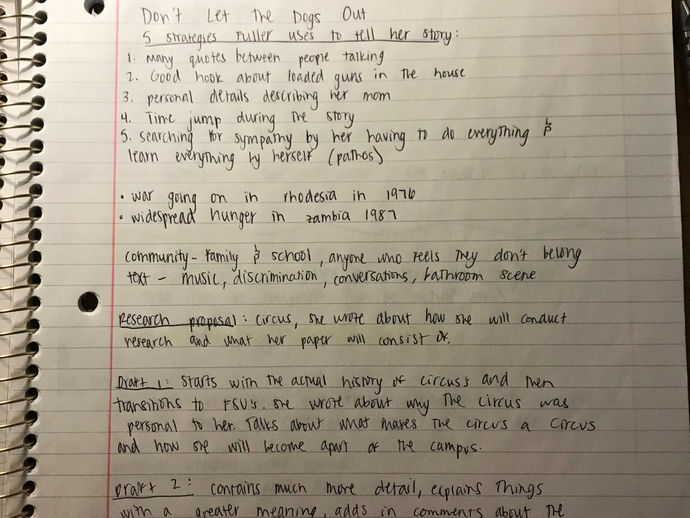 Don't Let the Dogs Out
5 strategies Fuller uses to tell her story:
1. Many quotes between people talking
2. Good hook about loaded guns in the house
3. personal details describing her mom
4. Time jump during the story
5. searching for sympathy by her having to do everything &
learn everything by herself (pathos)
• war going on in rhodesia in 1976
• widespread hunger in zambia 1987
community - family & school, anyone who feels they don't belong
text - music, discrimination, conversations, bathroom scene
Research proposal: circus, she wrote about how she will conduct
research and what her paper will consist of.
Draft 1: starts with the actual history of circus's and then
transitions to FSU's. she wrote about why the circus was
personal to her. Talks about what makes the circus a circus
and how she will become apart of the campus.
Draft 2: contains much more detail, explains things
with a greater meaning, adds in comments about the